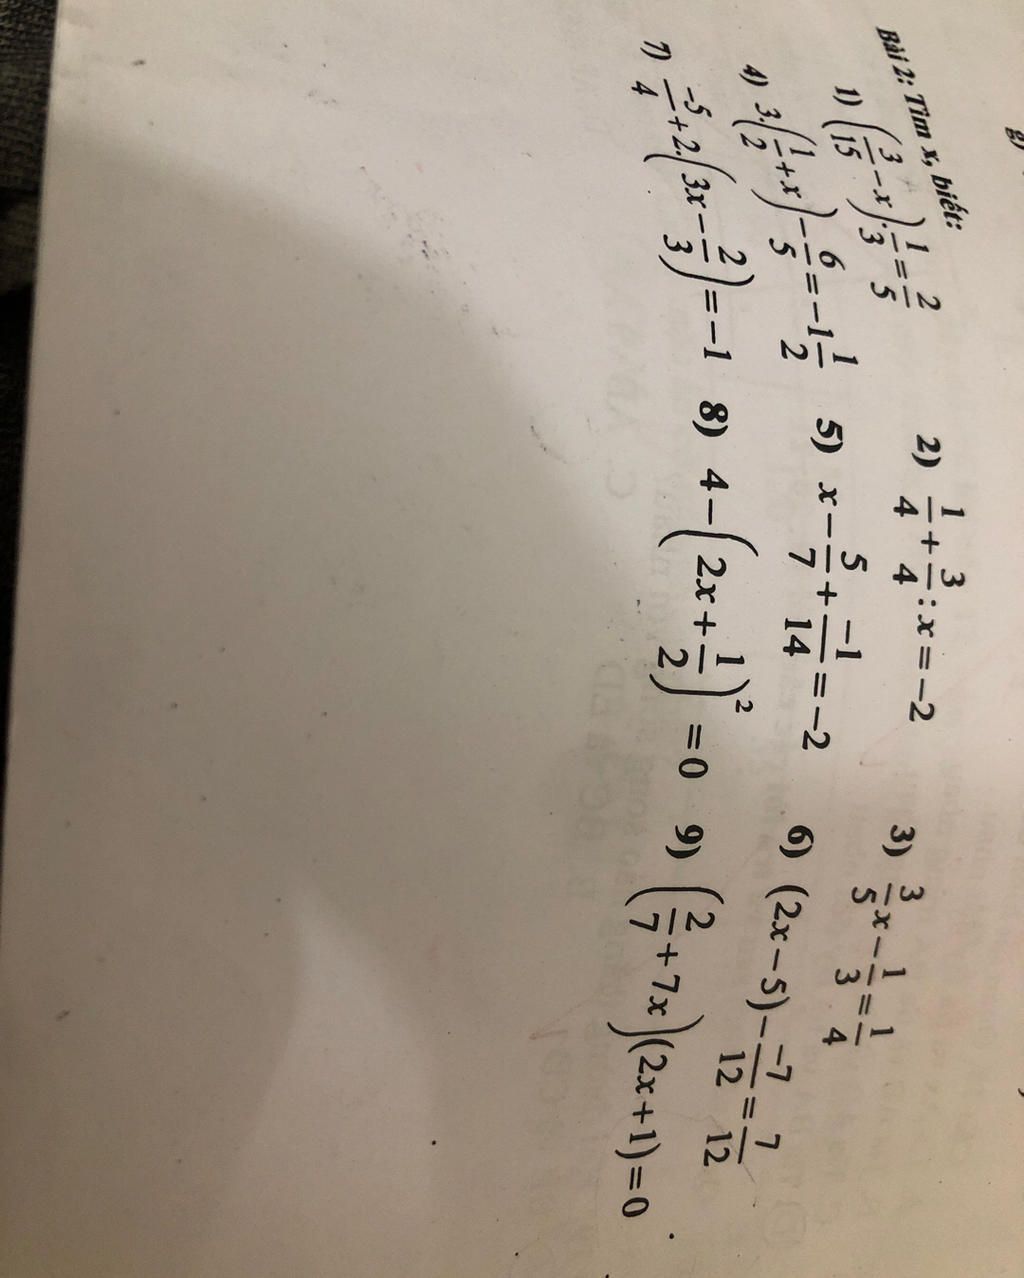 g)
Bài 2: Tìm x, biết:
1) (3/15 − x) · 1/3 = 2/5 2) 1/4 + 3/4 : x = −2 3) 3/5 x − 1/3 = 1/4
4) 3.(1/2 + x) − 6/5 = −1 1/2 5) x − 5/7 + −1/14 = −2 6) (2x − 5) − −7/12 = 7/12
7) −5/4 + 2.(3x − 2/3) = −1 8) 4 − (2x + 1/2)² = 0 9) (2/7 + 7x)(2x + 1) = 0